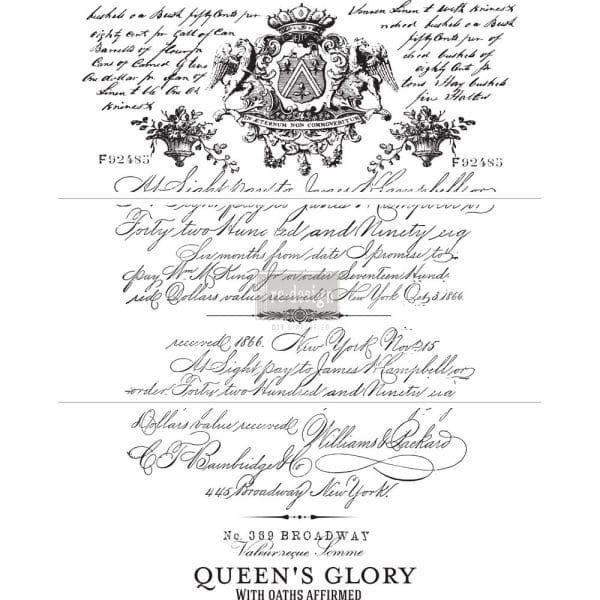 bushels oa Bush fifty Cents per
Eighty Cent pr Gall of Can
Barrells of flour pr
Cans of Coloned Glens
One dollar pr of
Linen t
Linen t With
bushels
fifty Cents per of
bushels of
eighty Cent
bushels
five
IN ÆTERNUM NON COMMOVEBITUR
F92485 F92485
At Sight pay to James W Campbell or
Sight pay to James W Campbell or
Forty two Hund ed and Ninety eig
Six months from date I promise to
pay Wm McKing Jr or order Seventeen Hund
red Dollars value received New York Oct 3, 1866.
re·design
received 1866. New York Nov. 15
At Sight pay to James W Campbell or
order. Forty two Hundred and Ninety eig
Dollars value received Williams & Packard
C T Bainbridge & Co
445 Broadway New York.
No. 369 BROADWAY
Valeur reçue Somme
QUEEN'S GLORY
WITH OATHS AFFIRMED